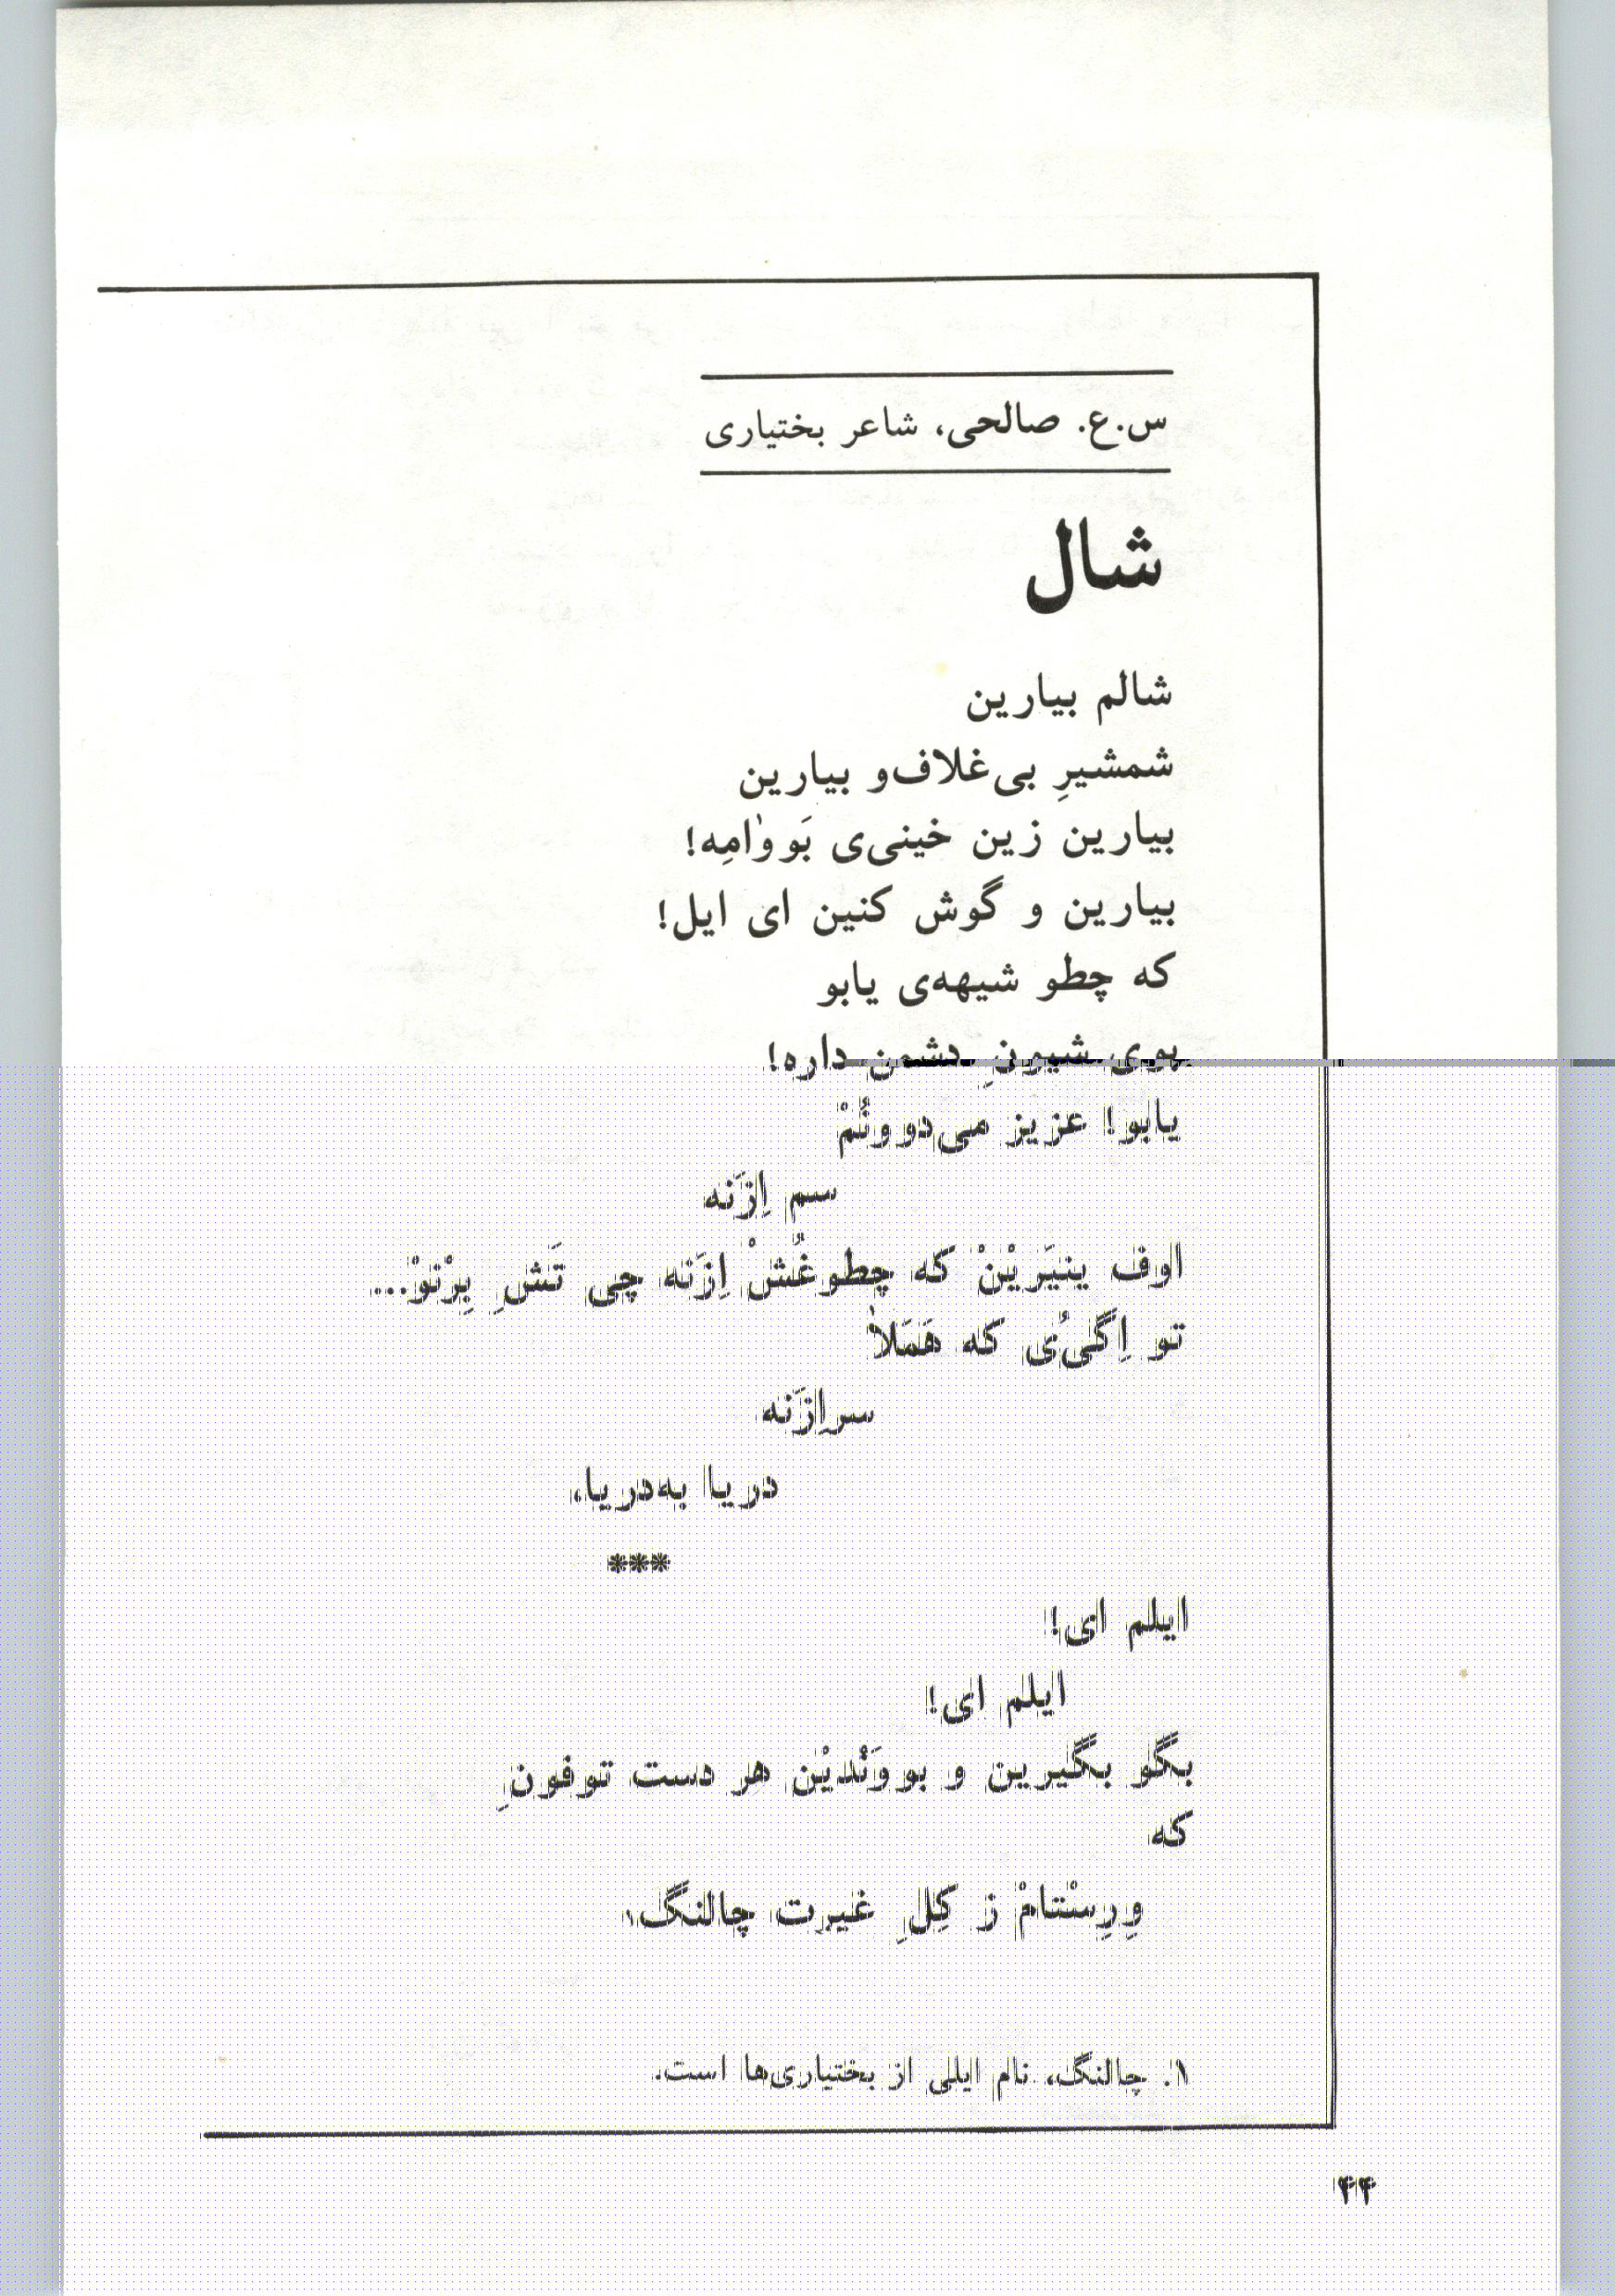 س.ع. صالحی، شاعر بختیاری
شال
شالم بیارین
شمشیرِ بی‌غلاف‌و بیارین
بیارین زین خینی‌ی بَووٰامِه!
بیارین و گوش کنین ای ایل!
که چطو شیهه‌ی یابو
بوی شیونِ دشمن داره!
یابو! عزیز می‌دوونُمْ
سم اِزَنه
اوف ینیَریْنْ که چطو غُشْ اِزَنه چی تَشِ بِرْنوْ...
تو اِگلی‌ُی که هَمَلاٰ
سراِزَنه
دریا به‌دریا،
***
ایلم ای!
ایلم ای!
بگو بگیرین و بووَنْدیْن هر دست توفونِ
که
وِرِسْتامْ ز کِلِ غیرت چالنگ۱
۱. چالنگ، نام ایلی از بختیاری‌ها است.
۴۴